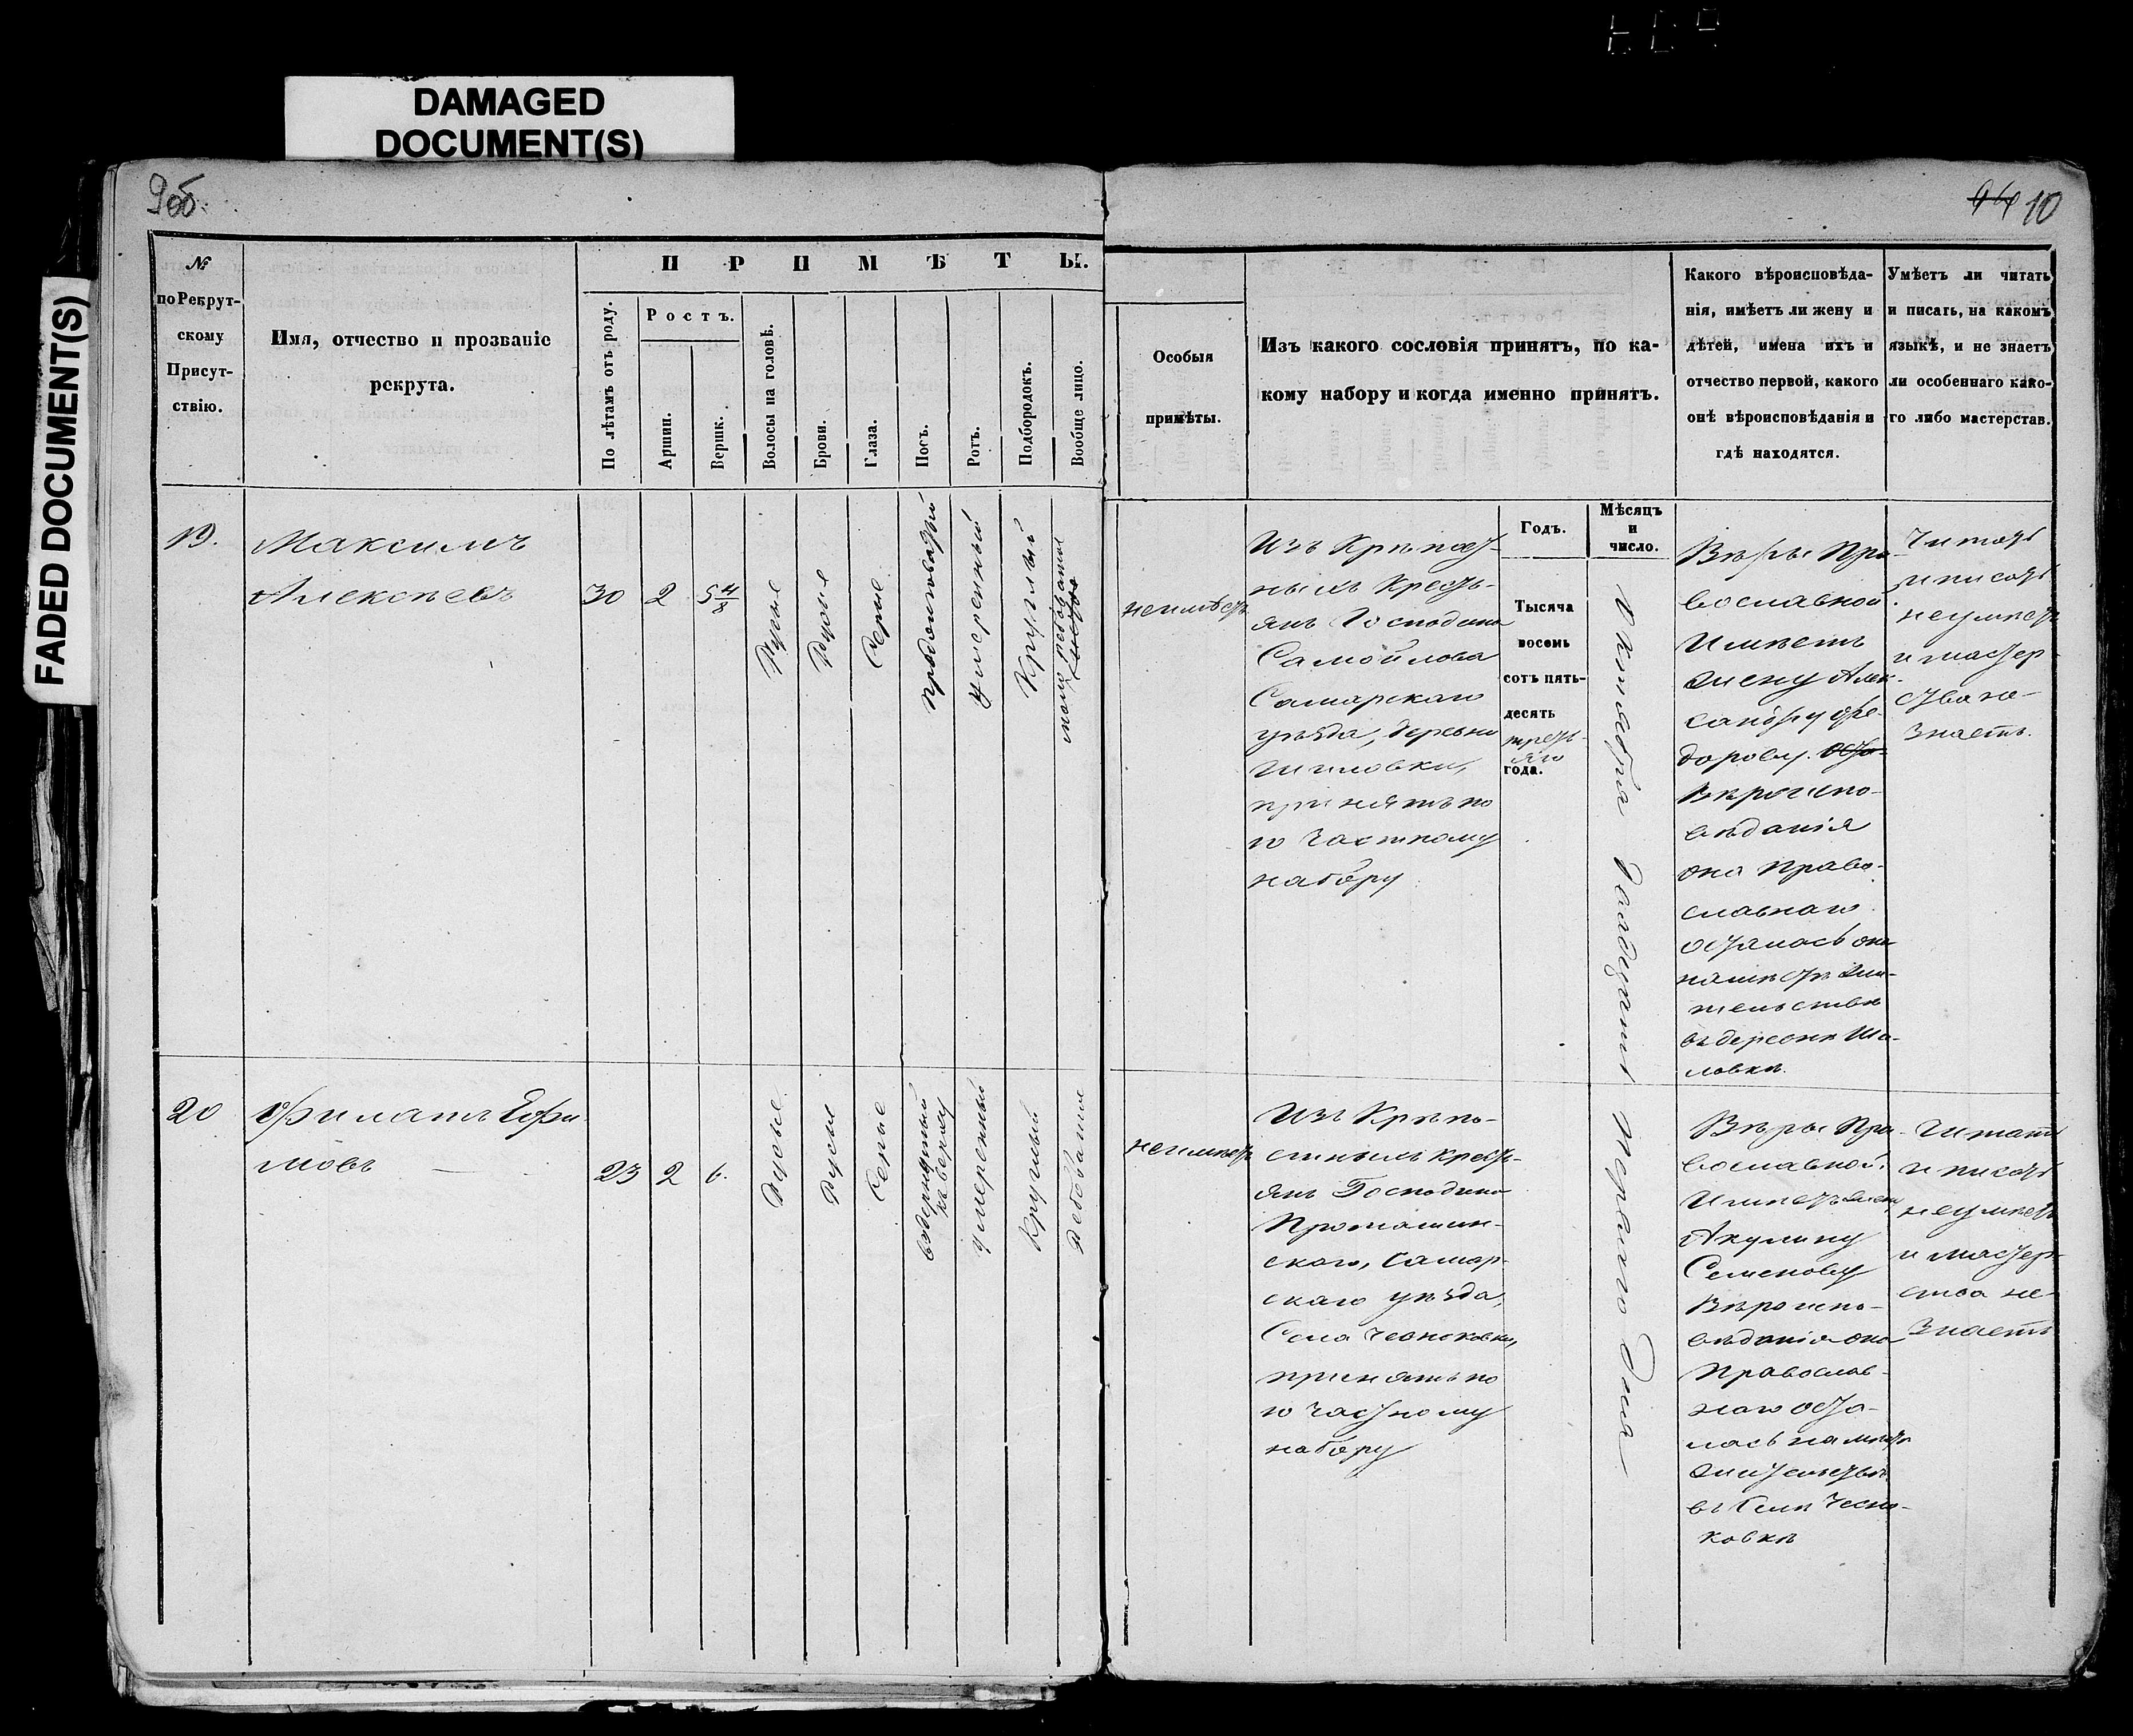 DAMAGED
DOCUMENT(S)
FADED DOCUMENT(S)
9об.
10
№
по Рекрут-
скому
Присут-
ствію.
Имя, отчество и прозваніе
рекрута.
ПРИМѢТЫ.
По лѣтамъ отъ роду.
Ростъ.
Аршин.
Вершк.
Волосы на головѣ.
Брови.
Глаза.
Носъ.
Ротъ.
Подбородокъ.
Вообще лицо.
Особыя
примѣты.
Изъ какого сословія принятъ, по ка-
кому набору и когда именно принятъ.
Какого вѣроисповѣда-
нія, имѣетъ ли жену и
дѣтей, имена ихъ и
отчество первой, какого
онѣ вѣроисповѣданія и
гдѣ находятся.
Умѣетъ ли читать
и писать, на какомъ
языкѣ, и не знаетъ
ли особеннаго како-
го либо мастерстав.
19.
Максимъ
Алексѣевъ
30
2
5 4/8
Русые
Русые
Серые
Продолговатый
Умеренный
Круглый
мало рябоватое
неимѣетъ
Изъ Крѣпост-
ныхъ Кресть-
янъ Господина
Самойлова
Самарскаго
уѣзда, деревни
Шиловки,
принятъ по
10 Частному
набору
Годъ.
Тысяча
восемь
сотъ пять-
десять
треть-
яго
года.
Мѣсяцъ
и
число.
Октября Двадцать перваго Дня
Вѣры Пра-
вославной
Имѣетъ
жену Алек-
сандру Фе-
дорову.
Вѣроиспо-
вѣданія
она Право-
славнаго
осталась она
на мѣстѣ жи-
тельства
въ деревнѣ Ши-
ловкѣ.
Читать
и писать
неумѣетъ
и мастер-
ства не-
знаетъ.
20
Филатъ Ефи-
мовъ
23
2
6.
Русые
Русые
Серые
вздернутый
къ верху
умеренный
Круглый
Рябоватое
неимѣетъ
Изъ Крѣпо-
стныхъ Кресть-
янъ Господина
Проташин-
скаго, Самар-
скаго уѣзда,
Села Чесноковки,
принятъ по
10 Частному
набору
Вѣры Пра-
вославной.
Имѣетъ жену
Акулину
Семенову
Вѣроиспо-
вѣданія она
Православ-
наго оста-
лась на мѣстѣ
жительства
въ Селѣ Чесно-
ковкѣ
Читать
и писать
неумѣетъ
и мастер-
ства не-
знаетъ